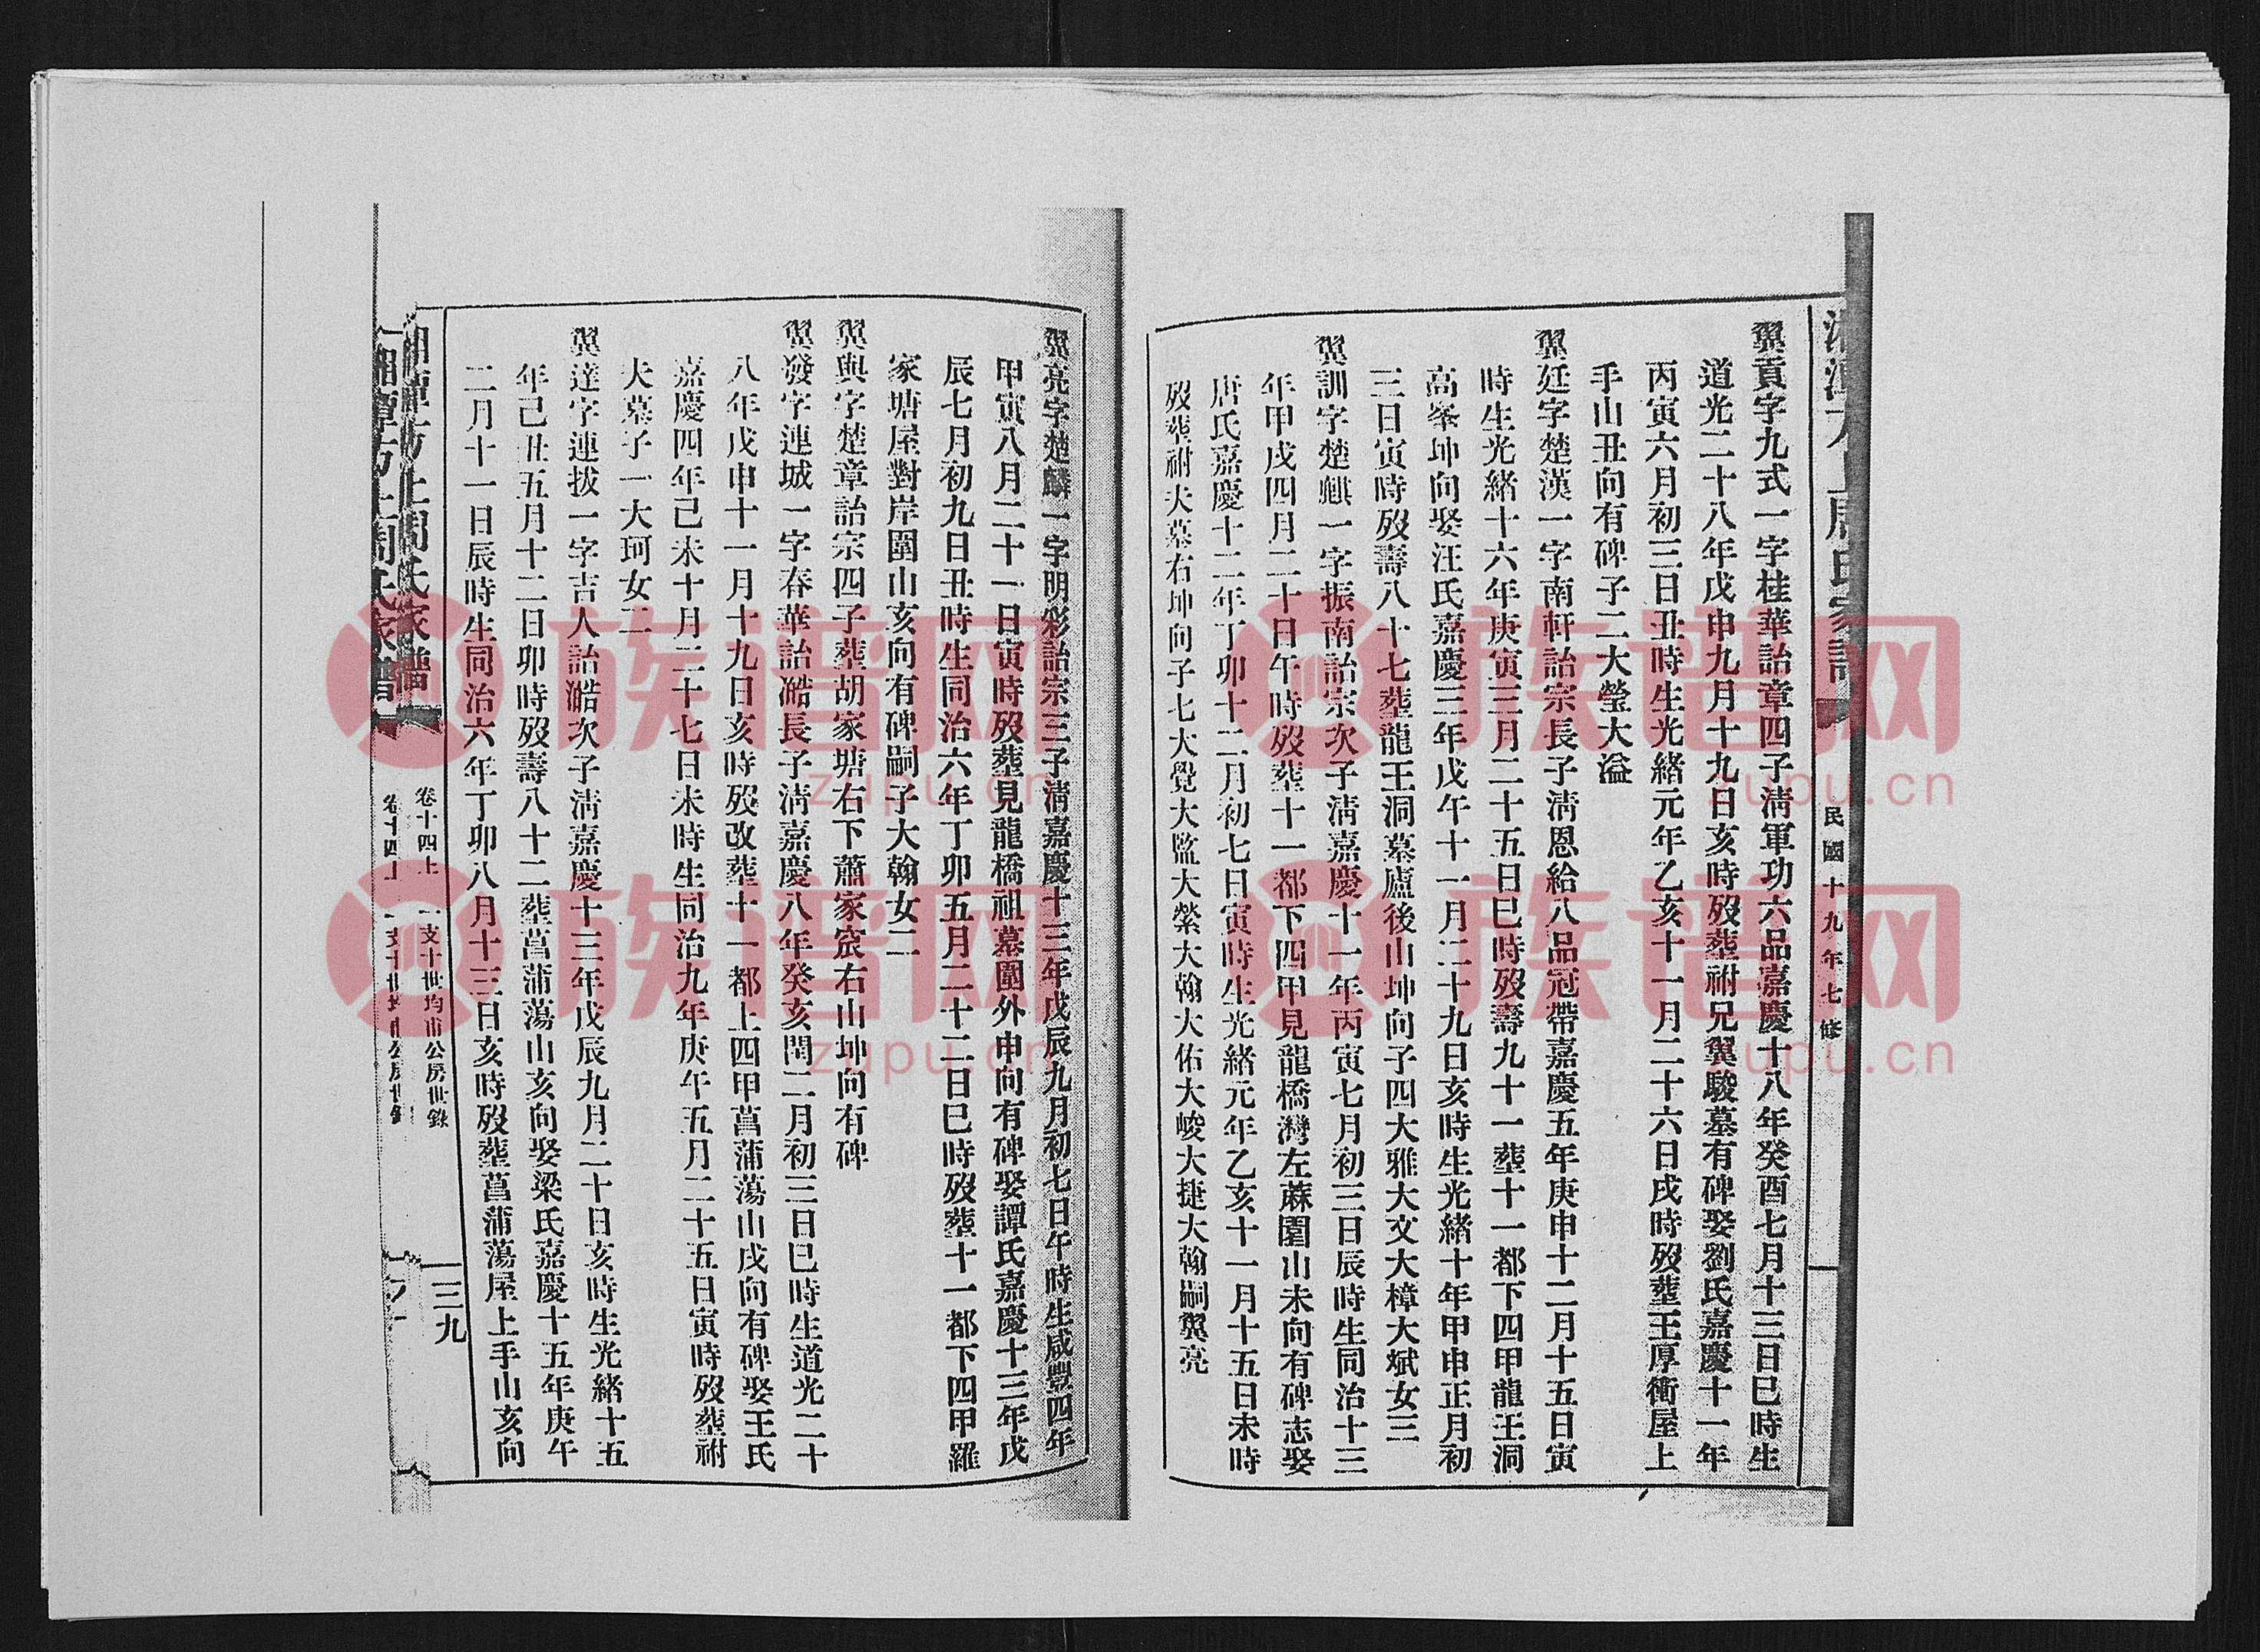 民國十九年七修
翼貢字九式一字桂華詒章四子淸軍功六品嘉慶十八年癸酉七月十三日巳時生
道光二十八年戊申九月十九日亥時歿葬祔兄翼駿墓有碑娶劉氏嘉慶十一年
丙寅六月初三日丑時生光緒元年乙亥十一月二十六日戌時歿葬王厚衝屋上
手山丑向有碑子二大瑩大溢
翼廷字楚漢一字南軒詒宗長子淸恩給八品冠帶嘉慶五年庚申十二月十五日寅
時生光緒十六年庚寅三月二十五日巳時歿壽九十一葬十一都下四甲龍王洞
高峯坤向娶汪氏嘉慶三年戊午十一月二十九日亥時生光緒十年甲申正月初
三日寅時歿壽八十七葬龍王洞墓廬後山坤向子四大雅大文大樟大斌女三
翼訓字楚麒一字振南詒宗次子淸嘉慶十一年丙寅七月初三日辰時生同治十三
年甲戌四月二十日午時歿葬十一都下四甲見龍橋灣左蔴園山未向有碑志娶
唐氏嘉慶十二年丁卯十二月初七日寅時生光緒元年乙亥十一月十五日未時
歿葬祔夫墓右坤向子七大覺大監大縈大翰大佑大峻大捷大翰嗣翼亮
翼亮字楚麟一字明彩詒宗三子淸嘉慶十三年戊辰九月初七日午時生咸豐四年
甲寅八月二十一日寅時歿葬見龍橋祖墓圍外申向有碑娶譚氏嘉慶十三年戊
辰七月初九日丑時生同治六年丁卯五月二十二日巳時歿葬十一都下四甲羅
家塘屋對岸圍山亥向有碑嗣子大翰女二
翼與字楚章詒宗四子葬胡家塘右下蕭家㝩右山坤向有碑
翼發字連城一字春華詒澔長子淸嘉慶八年癸亥閏二月初三日巳時生道光二十
八年戊申十一月十九日亥時歿改葬十一都上四甲菖蒲蕩山戌向有碑娶王氏
嘉慶四年己未十月二十七日未時生同治九年庚午五月二十五日寅時歿葬祔
夫墓子一大珂女二
翼達字連拔一字吉人詒澔次子淸嘉慶十三年戊辰九月二十日亥時生光緒十五
年己丑五月十二日卯時歿壽八十二葬菖蒲蕩山亥向娶梁氏嘉慶十五年庚午
二月十一日辰時生同治六年丁卯八月十三日亥時歿葬菖蒲蕩屋上手山亥向
卷十四上 一支十世均甫公房世錄 三九
族谱网
zupu.cn
族谱网
zupu.cn
族谱网
zupu.cn
族谱网
zupu.cn